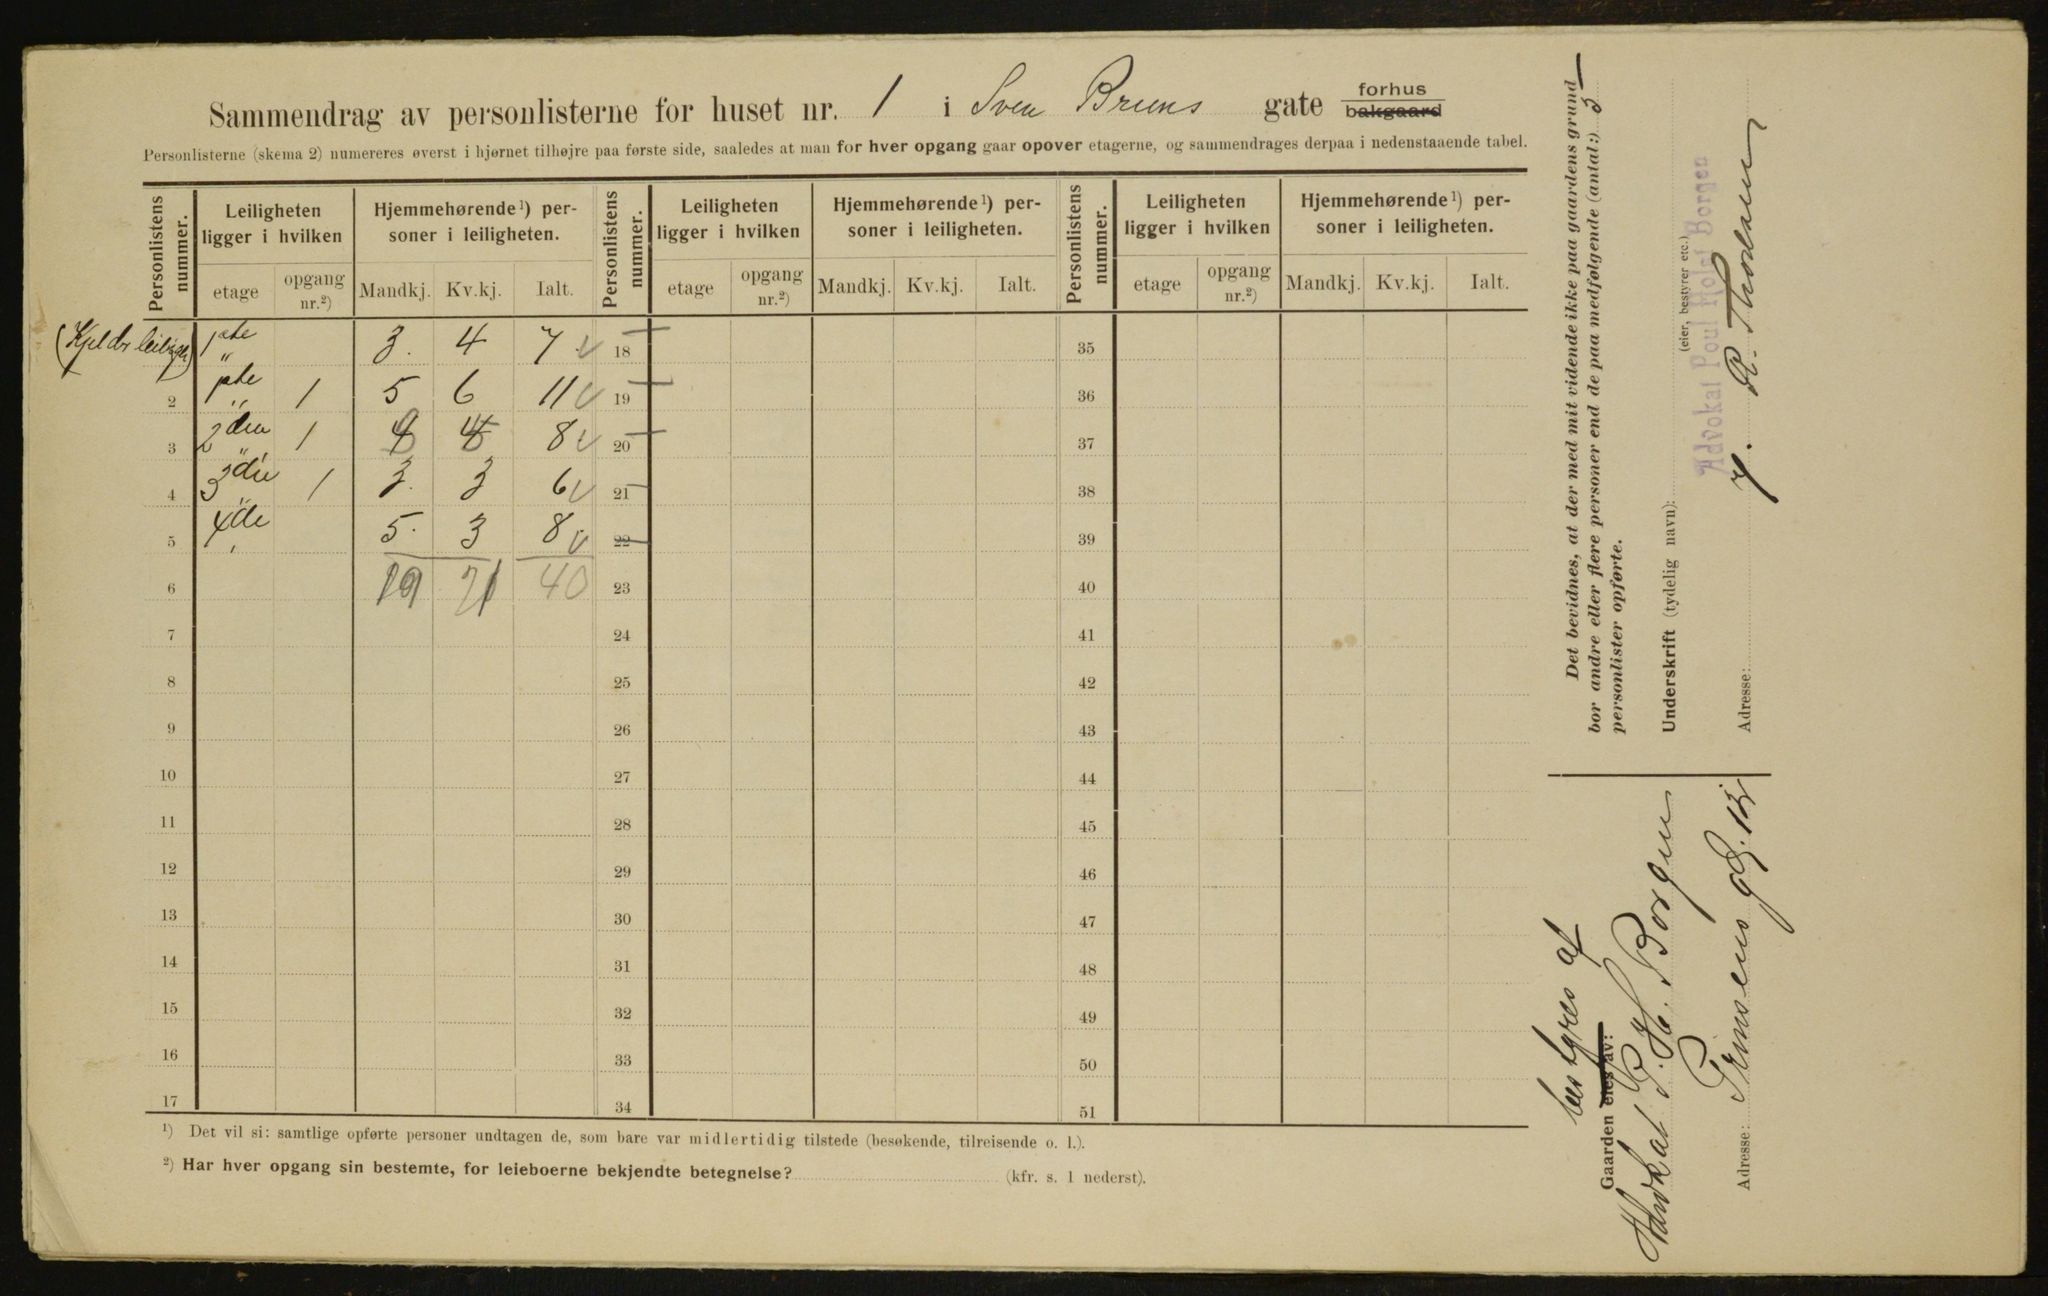 Sammendrag av personlisterne for huset nr. 1 i Sven Bruns gate forhus bakgaard
Personlisterne (skema 2) numereres øverst i hjørnet tilhøjre paa første side, saaledes at man for hver opgang gaar opover etagerne, og sammendrages derpaa i nedenstaaende tabel.
Personlistens nummer. Leiligheten ligger i hvilken Hjemmehørende ¹) personer i leiligheten. Personlistens nummer. Leiligheten ligger i hvilken Hjemmehørende ¹) personer i leiligheten. Personlistens nummer. Leiligheten ligger i hvilken Hjemmehørende ¹) personer i leiligheten.
etage opgang nr.²) Mandkj. Kv.kj. Ialt. etage opgang nr.²) Mandkj. Kv.kj. Ialt. etage opgang nr.²) Mandkj. Kv.kj. Ialt.
1ste 3. 4 7 18 35
2 1ste 1 5 6 11 19 36
3 2den 1 4 8 20 37
4 3die 1 3. 3 6 21 38
5 4de 5. 3 8 22 39
6 19 21 40 23 40
7 24 41
8 25 42
9 26 43
10 27 44
11 28 45
12 29 46
13 30 47
14 31 48
15 32 49
16 33 50
17 34 51
¹) Det vil si: samtlige opførte personer undtagen de, som bare var midlertidig tilstede (besøkende, tilreisende o. l.).
²) Har hver opgang sin bestemte, for leieboerne bekjendte betegnelse? (kfr. s. 1 nederst).
Det bevidnes, at der med mit vidende ikke paa gaardens grund
bor andre eller flere personer end de paa medfølgende (antal:) 5
personlister opførte.
Underskrift (tydelig navn):
(eier, bestyrer etc.)
Advokat Poul Holst Borgen
Adresse:
bestyres af
Gaarden eies av:
Advokat P. H. Borgen
Adresse: Prinsens gd.